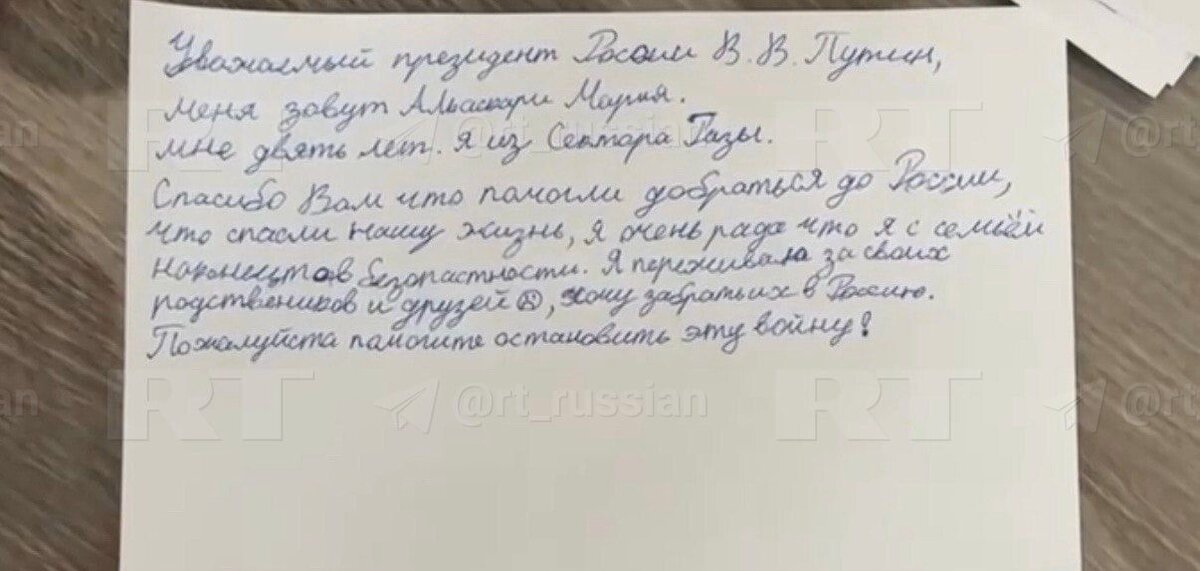 Уважаемый президент России В. В. Путин,
меня зовут Альаскари Мария.
мне двять лет. Я из Сектора Газы.
Спасибо Вам что помогли добраться до России,
что спасли нашу жизнь, я очень рада что я с семьёй
наконец в безопастности. Я переживаю за своих
родствеников и друзей, хочу забрать их в Россию.
Пожалуйста памогите остановить эту войну!
RT @rt_russian
RT @rt_russian